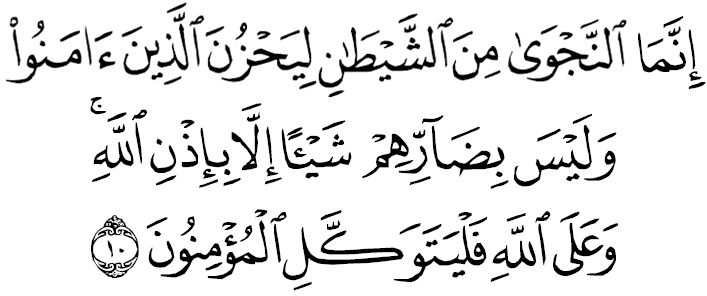 إِنَّمَا ٱلنَّجْوَىٰ مِنَ ٱلشَّيْطَٰنِ لِيَحْزُنَ ٱلَّذِينَ ءَامَنُوا۟
وَلَيْسَ بِضَآرِّهِمْ شَيْـًٔا إِلَّا بِإِذْنِ ٱللَّهِ ۚ
وَعَلَى ٱللَّهِ فَلْيَتَوَكَّلِ ٱلْمُؤْمِنُونَ ١٠